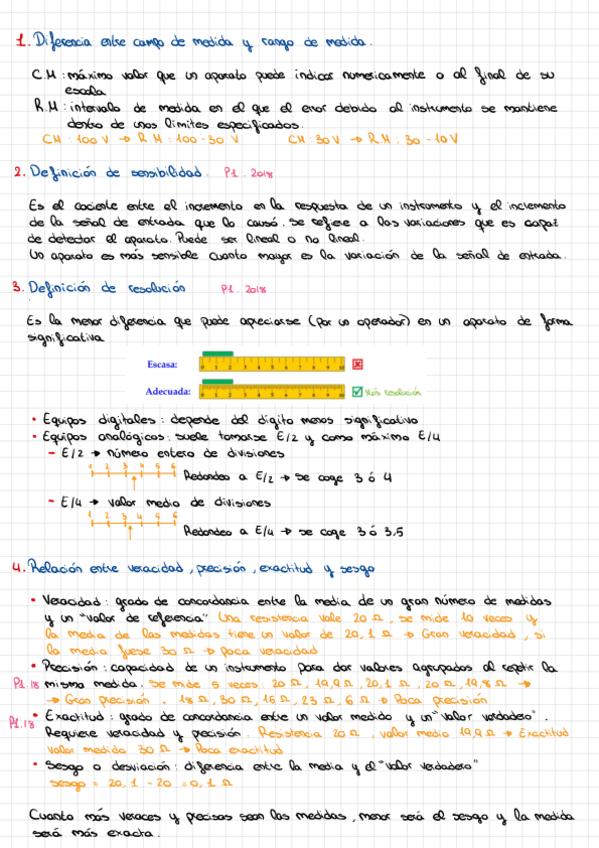 1. Diferencia entre campo de medida y rango de medida.
C.M : máximo valor que un aparato puede indicar numericamente o al final de su
escala
R.M : intervalo de medida en el que el error debido al instrumento se mantiene
dentro de unos límites especificados.
CM : 100 V → R M : 100 - 30 V CM : 30 V → R.M : 30 - 10 V
2. Definición de sensibilidad. P1. 2018
Es el cociente entre el incremento en la respuesta de un instrumento y el incremento
de la señal de entrada que lo causó. Se refiere a las variaciones que es capaz
de detectar el aparato. Puede ser lineal o no lineal.
Un aparato es más sensible cuanto mayor es la variación de la señal de entrada.
3. Definición de resolución P1. 2018
Es la menor diferencia que puede apreciarse (por un operador) en un aparato de forma
significativa
Escasa: 0 1 2 3 4 5 6 7 8 9 10
Adecuada: 0 1 2 3 4 5 6 7 8 9 10 Más resolución
• Equipos digitales : depende del dígito menos significativo
• Equipos analógicos : suele tomarse E/2 y como máximo E/4
- E/2 → número entero de divisiones
1 2 3 4 5 6
Redondeo a E/2 → se coge 3 ó 4
- E/4 → valor medio de divisiones
1 2 3 4 5 6
Redondeo a E/4 → se coge 3 ó 3,5
4. Relación entre veracidad, precisión, exactitud y sesgo
• Veracidad : grado de concordancia entre la media de un gran número de medidas
y un "valor de referencia" Una resistencia vale 20 Ω, se mide 10 veces y
la media de las medidas tiene un valor de 20,1 Ω → Gran veracidad, si
la media fuese 30 Ω → poca veracidad
• Precisión : capacidad de un instrumento para dar valores agrupados al repetir la
P1.18 misma medida. Se mide 5 veces : 20 Ω, 19,9 Ω, 20,1 Ω, 20 Ω, 19,8 Ω →
→ Gran precisión. 18 Ω, 30 Ω, 15 Ω, 23 Ω, 6 Ω → Poca precisión
P1.18 • Exactitud : grado de concordancia entre un valor medido y un "valor verdadero".
Requiere veracidad y precisión. Resistencia 20 Ω, valor medio 19,9 Ω → Exactitud
valor medida 30 Ω → Poca exactitud
• Sesgo o desviación : diferencia entre la media y el "valor verdadero"
sesgo = 20,1 - 20 = 0,1 Ω
Cuanto más veraces y precisas sean las medidas, menor será el sesgo y la medida
será más exacta.